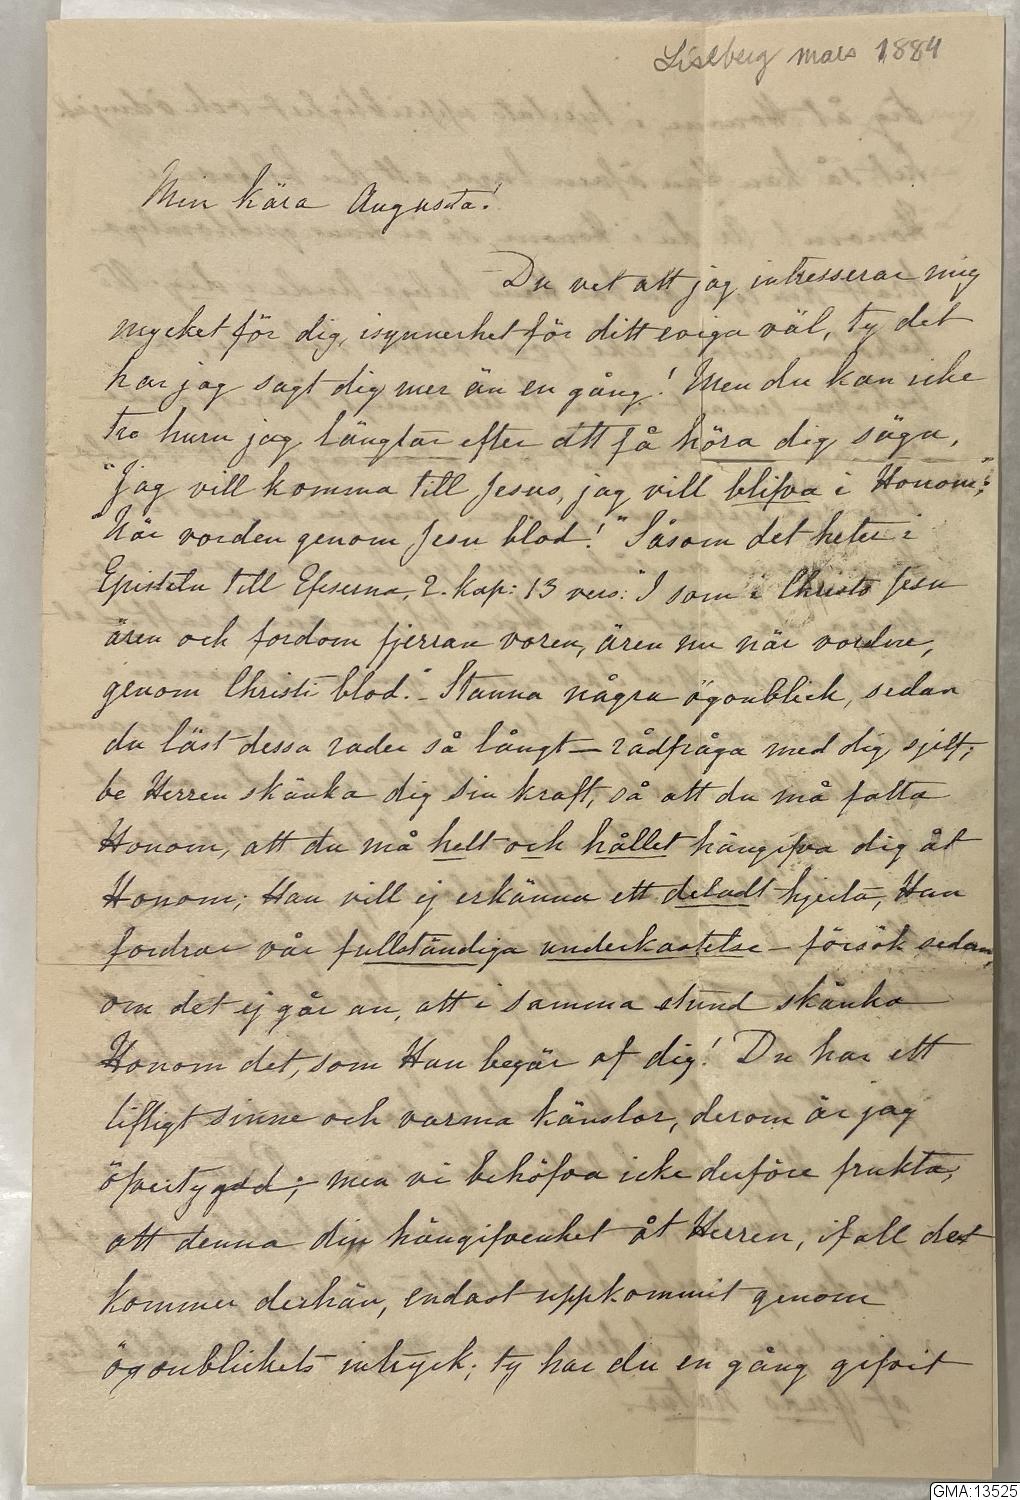 Liseberg mars 1884
Min kära Augusta!
Du vet att jag intresserar mig
mycket för dig, isynnerhet för ditt eviga väl, ty det
har jag sagt dig mer än en gång! Men du kan icke
tro huru jag längtar efter att få höra dig säga,
"Jag vill komma till Jesus, jag vill blifva i Honom;"
"När vorden genom Jesu blod!" Såsom det heter i
Episteln till Efeserna, 2. kap: 13 vers: "I som i Christo Jesu
ären och fordom fjerran voren, ären nu när vordne,
genom Christi blod." – Stanna några ögonblick, sedan
du läst dessa rader så långt – rådfråga med dig sjelf;
be Herren skänka dig sin kraft, så att du må fatta
Honom, att du må helt och hållet hängifva dig åt
Honom; Han vill ej erkänna ett deladt hjerta, Han
fordrar vår fullständiga underkastelse – försök sedan,
om det ej går an, att i samma stund skänka
Honom det, som Han begär af dig! Du har ett
lifligt sinne och varma känslor, derom är jag
öfvertygad; men vi behöfva icke derföre frukta,
att denna din hängifvenhet åt Herren, ifall det
kommer derhän, endast uppkommit genom
ögonblickets intryck; ty har du en gång gifvit
GMA:13525